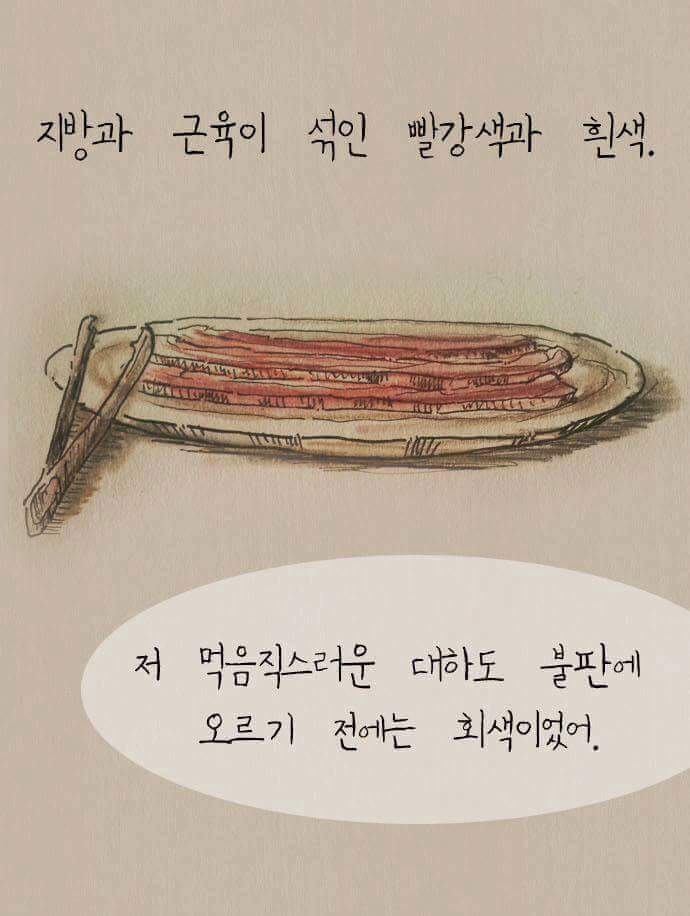 지방과 근육이 섞인 빨강색과 흰색.
저 먹음직스러운 대하도 불판에
오르기 전에는 회색이었어.